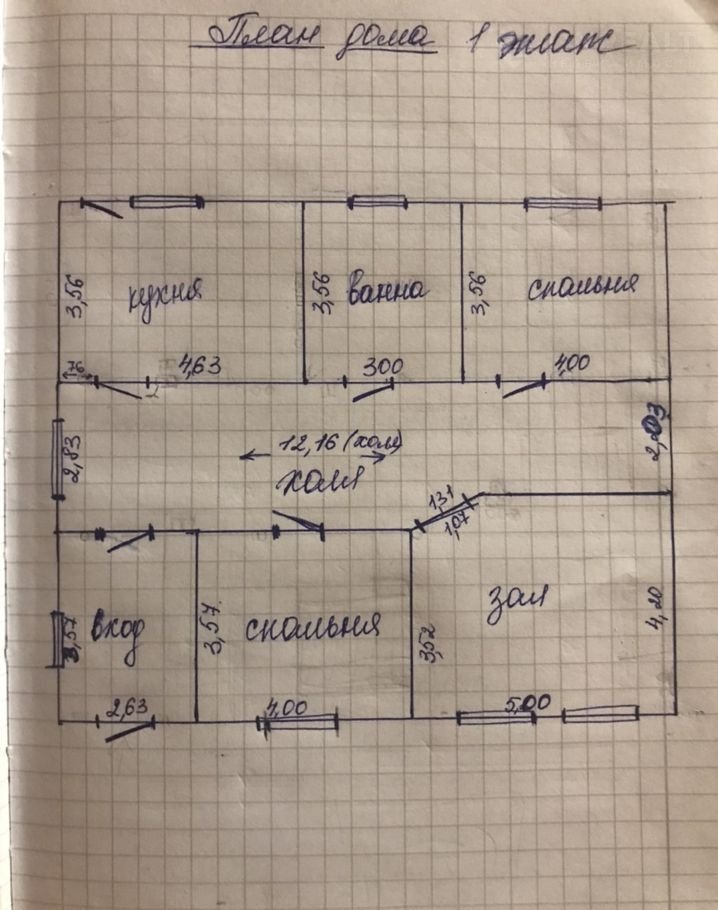 План дома 1 этаж
3,56 кухня 3,56 ванна 3,56 спальня
76 4,63 300 4,00
2,83 12,16 (холл)
холл
1,31
1,07
3,57 вход 3,57 спальня 3,52 зал 4,20
2,63 4,00 5,00